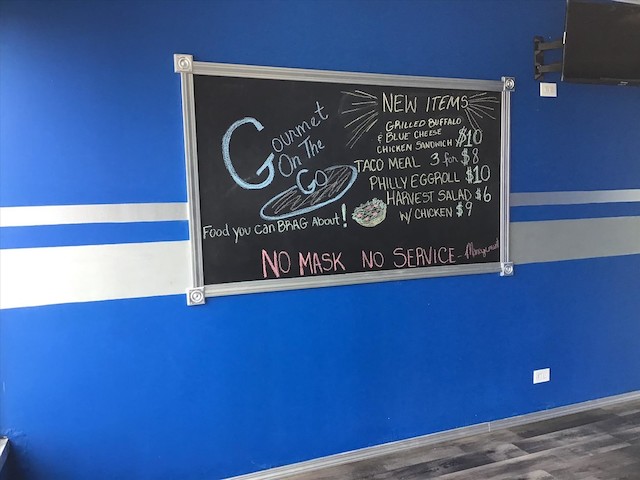 Gourmet
On The
Go
Food you can BRAG About!
NEW ITEMS
GRILLED BUFFALO
& BLUE CHEESE
CHICKEN SANDWICH $10
TACO MEAL 3 for $8
PHILLY EGGROLL $10
HARVEST SALAD $6
W/ CHICKEN $9
NO MASK NO SERVICE - Management